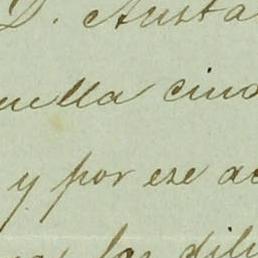 D. Austa
uella ciud
y por ese ac
las dili